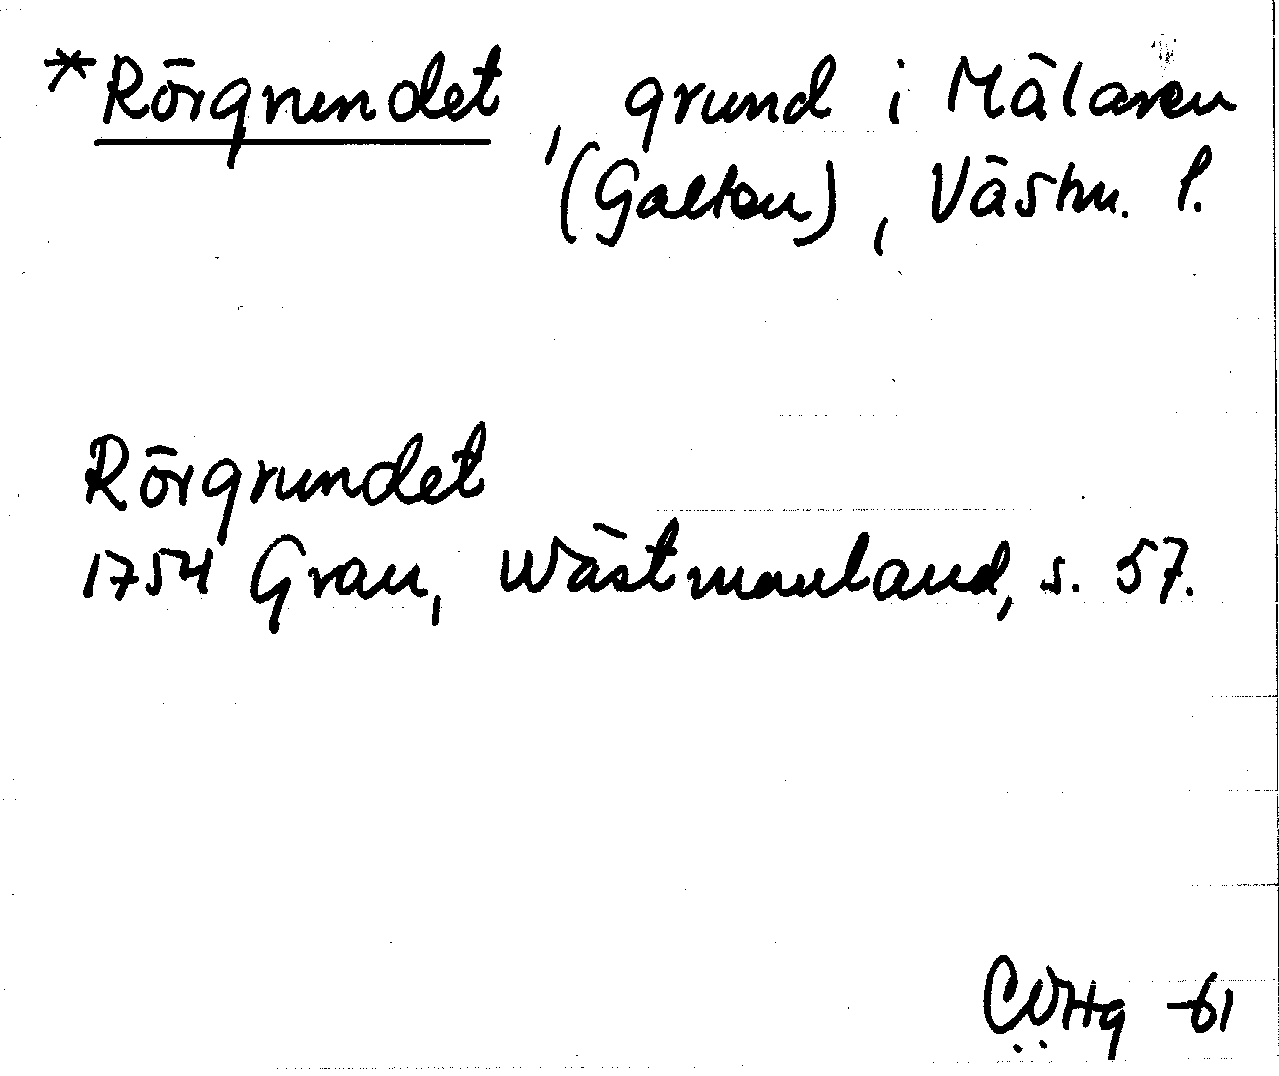 *Rörgrundet, grund i Mälaren
(Galten), Västm. l.
Rörgrundet
1754 Grau, Wästmanland, s. 57.
-61